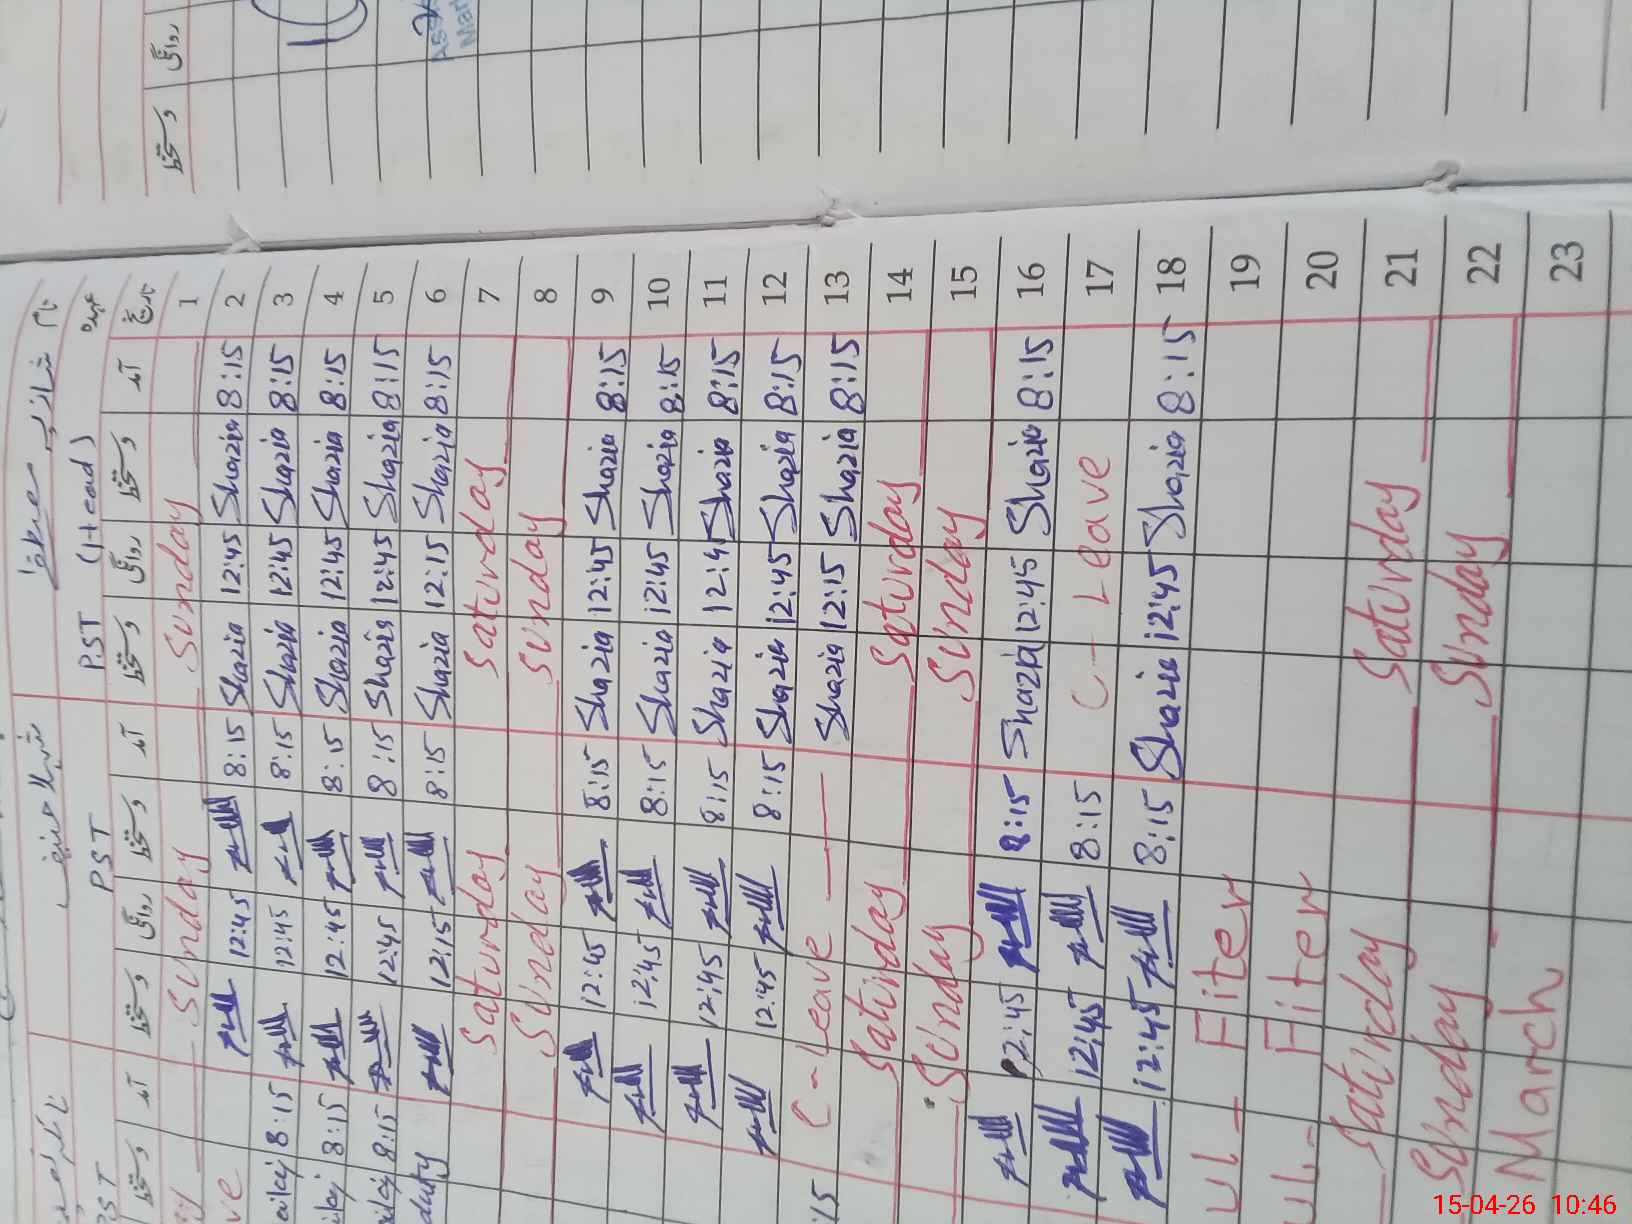 نام شازیہ مصطفیٰ
PST PST PST (Head) عہدہ
تاریخ آمد دستخط روانگی دستخط آمد دستخط روانگی دستخط آمد دستخط
Sunday Sunday 1
12:45 8:15 Shazia 12:45 Shazia 8:15 2
8:15 12:45 8:15 Shazia 12:45 Shazia 8:15 3
8:15 12:45 8:15 Shazia 12:45 Shazia 8:15 4
8:15 12:45 8:15 Shazia 12:45 Shazia 8:15 5
12:15 8:15 Shazia 12:15 Shazia 8:15 6
Saturday Saturday 7
Sunday Sunday 8
12:45 8:15 Shazia 12:45 Shazia 8:15 9
12:45 8:15 Shazia 12:45 Shazia 8:15 10
12:45 8:15 Shazia 12:45 Shazia 8:15 11
12:45 8:15 Shazia 12:45 Shazia 8:15 12
C-Leave Shazia 12:15 Shazia 8:15 13
Saturday Saturday 14
Sunday Sunday 15
12:45 8:15 Shazia 12:45 Shazia 8:15 16
12:45 8:15 C-Leave 17
12:45 8:15 Shazia 12:45 Shazia 8:15 18
ul-Fiter 19
ul-Fiter 20
Saturday Saturday 21
Sunday Sunday 22
March 23
روانگی دستخط
15-04-26 10:46